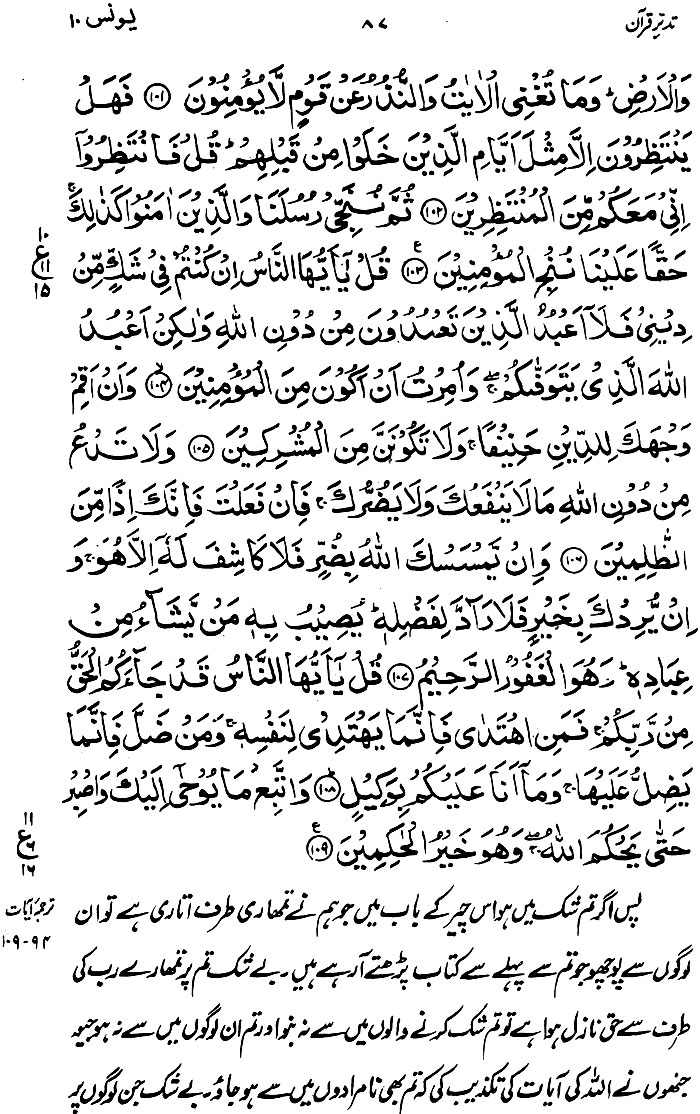 تدبرِ قرآن ۸۷ یونس ۱۰
وَالْاَرْضِ ؕ وَمَا تُغْنِی الْاٰیٰتُ وَالنُّذُرُ عَنْ قَوْمٍ لَّا یُؤْمِنُوْنَ ﴿۱۰۱﴾ فَهَلْ
یَنْتَظِرُوْنَ اِلَّا مِثْلَ اَیَّامِ الَّذِیْنَ خَلَوْا مِنْ قَبْلِهِمْ ؕ قُلْ فَانْتَظِرُوْۤا
اِنِّیْ مَعَكُمْ مِّنَ الْمُنْتَظِرِیْنَ ﴿۱۰۲﴾ ثُمَّ نُنَجِّیْ رُسُلَنَا وَالَّذِیْنَ اٰمَنُوْا كَذٰلِكَ ۚ
حَقًّا عَلَیْنَا نُنْجِ الْمُؤْمِنِیْنَ ﴿۱۰۳﴾ ع قُلْ یٰۤاَیُّهَا النَّاسُ اِنْ كُنْتُمْ فِیْ شَكٍّ مِّنْ
۱۰ ع ۱۱ ۱۵
دِیْنِیْ فَلَاۤ اَعْبُدُ الَّذِیْنَ تَعْبُدُوْنَ مِنْ دُوْنِ اللهِ وَلٰكِنْ اَعْبُدُ
اللهَ الَّذِیْ یَتَوَفّٰىكُمْ ۖۚ وَاُمِرْتُ اَنْ اَكُوْنَ مِنَ الْمُؤْمِنِیْنَ ﴿۱۰۴﴾ ۙ وَاَنْ اَقِمْ
وَجْهَكَ لِلدِّیْنِ حَنِیْفًا ۚ وَلَا تَكُوْنَنَّ مِنَ الْمُشْرِكِیْنَ ﴿۱۰۵﴾ وَلَا تَدْعُ
مِنْ دُوْنِ اللهِ مَا لَا یَنْفَعُكَ وَلَا یَضُرُّكَ ۚ فَاِنْ فَعَلْتَ فَاِنَّكَ اِذًا مِّنَ
الظّٰلِمِیْنَ ﴿۱۰۶﴾ وَاِنْ یَّمْسَسْكَ اللهُ بِضُرٍّ فَلَا كَاشِفَ لَهٗۤ اِلَّا هُوَ ۚ وَ
اِنْ یُّرِدْكَ بِخَیْرٍ فَلَا رَآدَّ لِفَضْلِهٖ ؕ یُصِیْبُ بِهٖ مَنْ یَّشَآءُ مِنْ
عِبَادِهٖ ؕ وَهُوَ الْغَفُوْرُ الرَّحِیْمُ ﴿۱۰۷﴾ قُلْ یٰۤاَیُّهَا النَّاسُ قَدْ جَآءَكُمُ الْحَقُّ
مِنْ رَّبِّكُمْ ۚ فَمَنِ اهْتَدٰى فَاِنَّمَا یَهْتَدِیْ لِنَفْسِهٖ ۚ وَمَنْ ضَلَّ فَاِنَّمَا
یَضِلُّ عَلَیْهَا ۚ وَمَاۤ اَنَا عَلَیْكُمْ بِوَكِیْلٍ ﴿۱۰۸﴾ ؕ وَاتَّبِعْ مَا یُوْحٰۤى اِلَیْكَ وَاصْبِرْ
حَتّٰى یَحْكُمَ اللهُ ۖۚ وَهُوَ خَیْرُ الْحٰكِمِیْنَ ﴿۱۰۹﴾ ع
۱۱ ع ۶ ۱۶
پس اگر تم شک میں ہو اس چیز کے باب میں جو ہم نے تمھاری طرف اتاری ہے تو ان
ترجمۂ آیات
۹۴-۱۰۹
لوگوں سے پوچھو جو تم سے پہلے سے کتاب پڑھتے آ رہے ہیں۔ بے شک تم پر تمھارے رب کی
طرف سے حق نازل ہوا ہے تو تم شک کرنے والوں میں سے نہ بنو اور تم ان لوگوں میں سے نہ ہو جیو
جنھوں نے اللہ کی آیات کی تکذیب کی کہ تم بھی نامرادوں میں سے ہو جاؤ۔ بے شک جن لوگوں پر